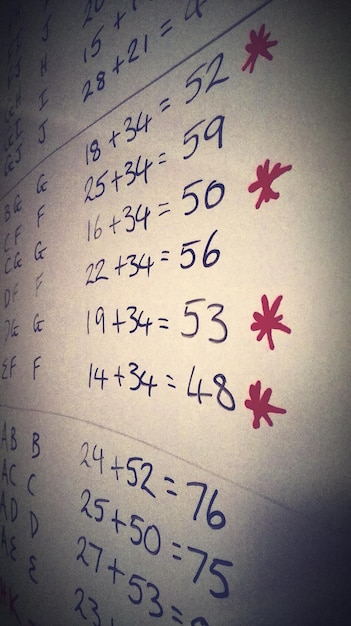 J 20
J 15 +
H 28 + 21 = 4
I
J
18 + 34 = 52 *
G 25 + 34 = 59
BG F 16 + 34 = 50 *
CF G 22 + 34 = 56
CG F
DF G 19 + 34 = 53 *
DG F 14 + 34 = 48 *
EF
AB B 24 + 52 = 76
AC C 25 + 50 = 75
AD D 27 + 53 =
AE E 23 +